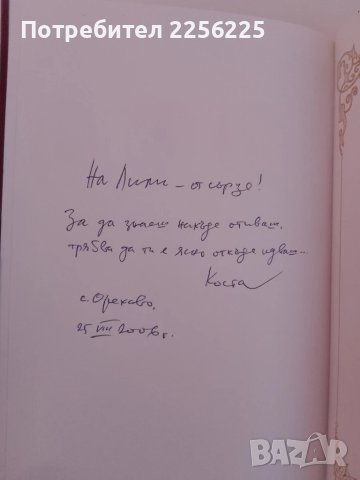 Потребител 2256225
На Лили – от сърце!
За да знаеш накъде отиваш,
трябва да ти е ясно откъде идваш.
Коста
с. Орехово,
25 VIII 2006 г.
BAZAR